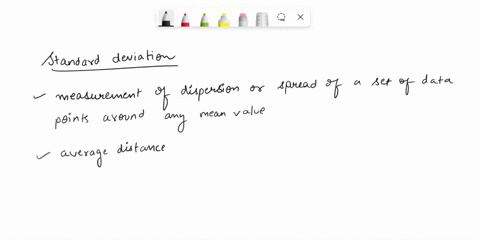 Standard deviation
✓ measurement of dispersion or spread of a set of data
points around any mean value
✓ average distance